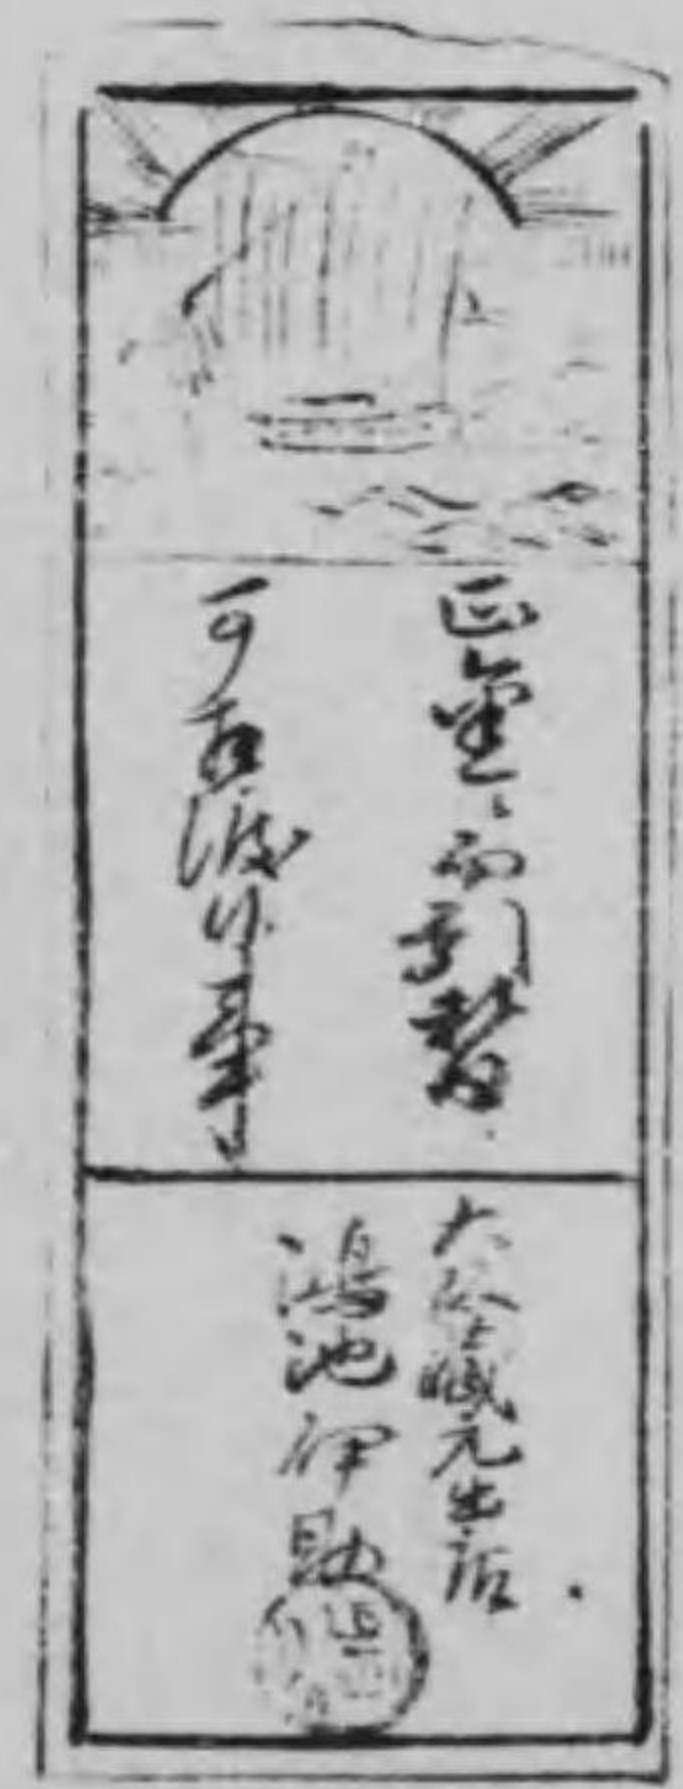 正金ニ而引替
可相渡候事
大坂蔵元出店
鴻池伊助